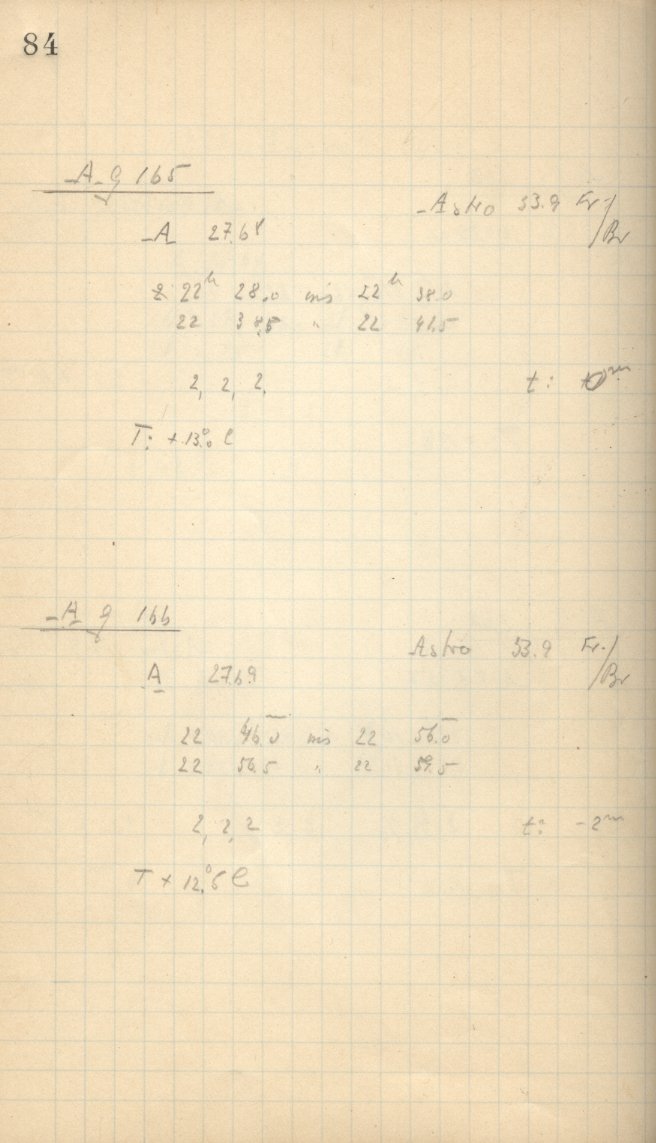 84
A g 165
Astro 53.9 Fr./Br
A 2768
22h 28.0 bis 22h 38.0
22 38.5 " 22 41.5
2, 2, 2.
t: 0m
T: + 13.°0 C
A g 166
Astro 53.9 Fr./Br
A 2769
22 46.0 bis 22 56.0
22 56.5 " 22 59.5
2, 2, 2
t: -2m
T + 12.°5 C